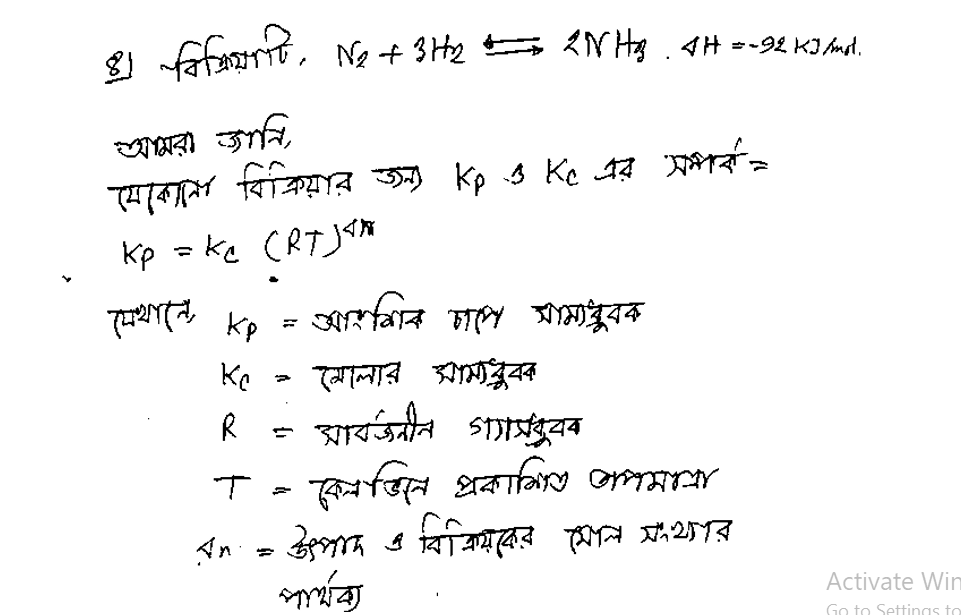 ৪) বিক্রিয়াটি, N₂ + 3H₂ ⇌ 2NH₃ . ΔH = -92 KJ/mol.
আমরা জানি,
যেকোনো বিক্রিয়ার জন্য Kp ও Kc এর সম্পর্ক =
Kp = Kc (RT)^Δn
যেখানে, Kp = আংশিক চাপে সাম্যধ্রুবক
Kc = মোলার সাম্যধ্রুবক
R = সার্বজনীন গ্যাসধ্রুবক
T = কেলভিনে প্রকাশিত তাপমাত্রা
Δn = উৎপাদ ও বিক্রিয়কের মোল সংখ্যার
পার্থক্য
Activate Win
Go to Settings to